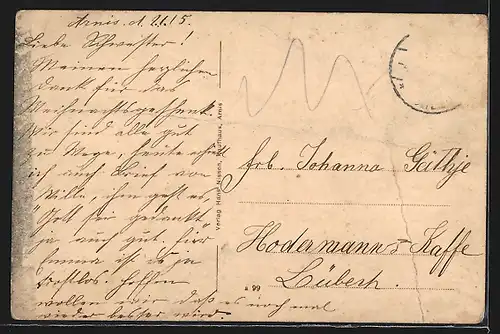 Arnis. d. 2.1.15.
Liebe Schwester!
Meinen herzlichen
Dank für das
Weihnachtsgeschenk.
Wir sind alle gut
zu Wege, heute erhielt
ich auch Brief von
Wille, ihm geht es,
Gott sei gedankt
ja auch gut. Für
Emma ist es ja
trostlos. Hoffen
wollen wir daß es noch mal
wieder besser wird.
Verlag Hans Nissen, Kaufhaus, Arnis
Frl. Johanna Gäthje
Hodermann's Kaffe
Lübeck.
99